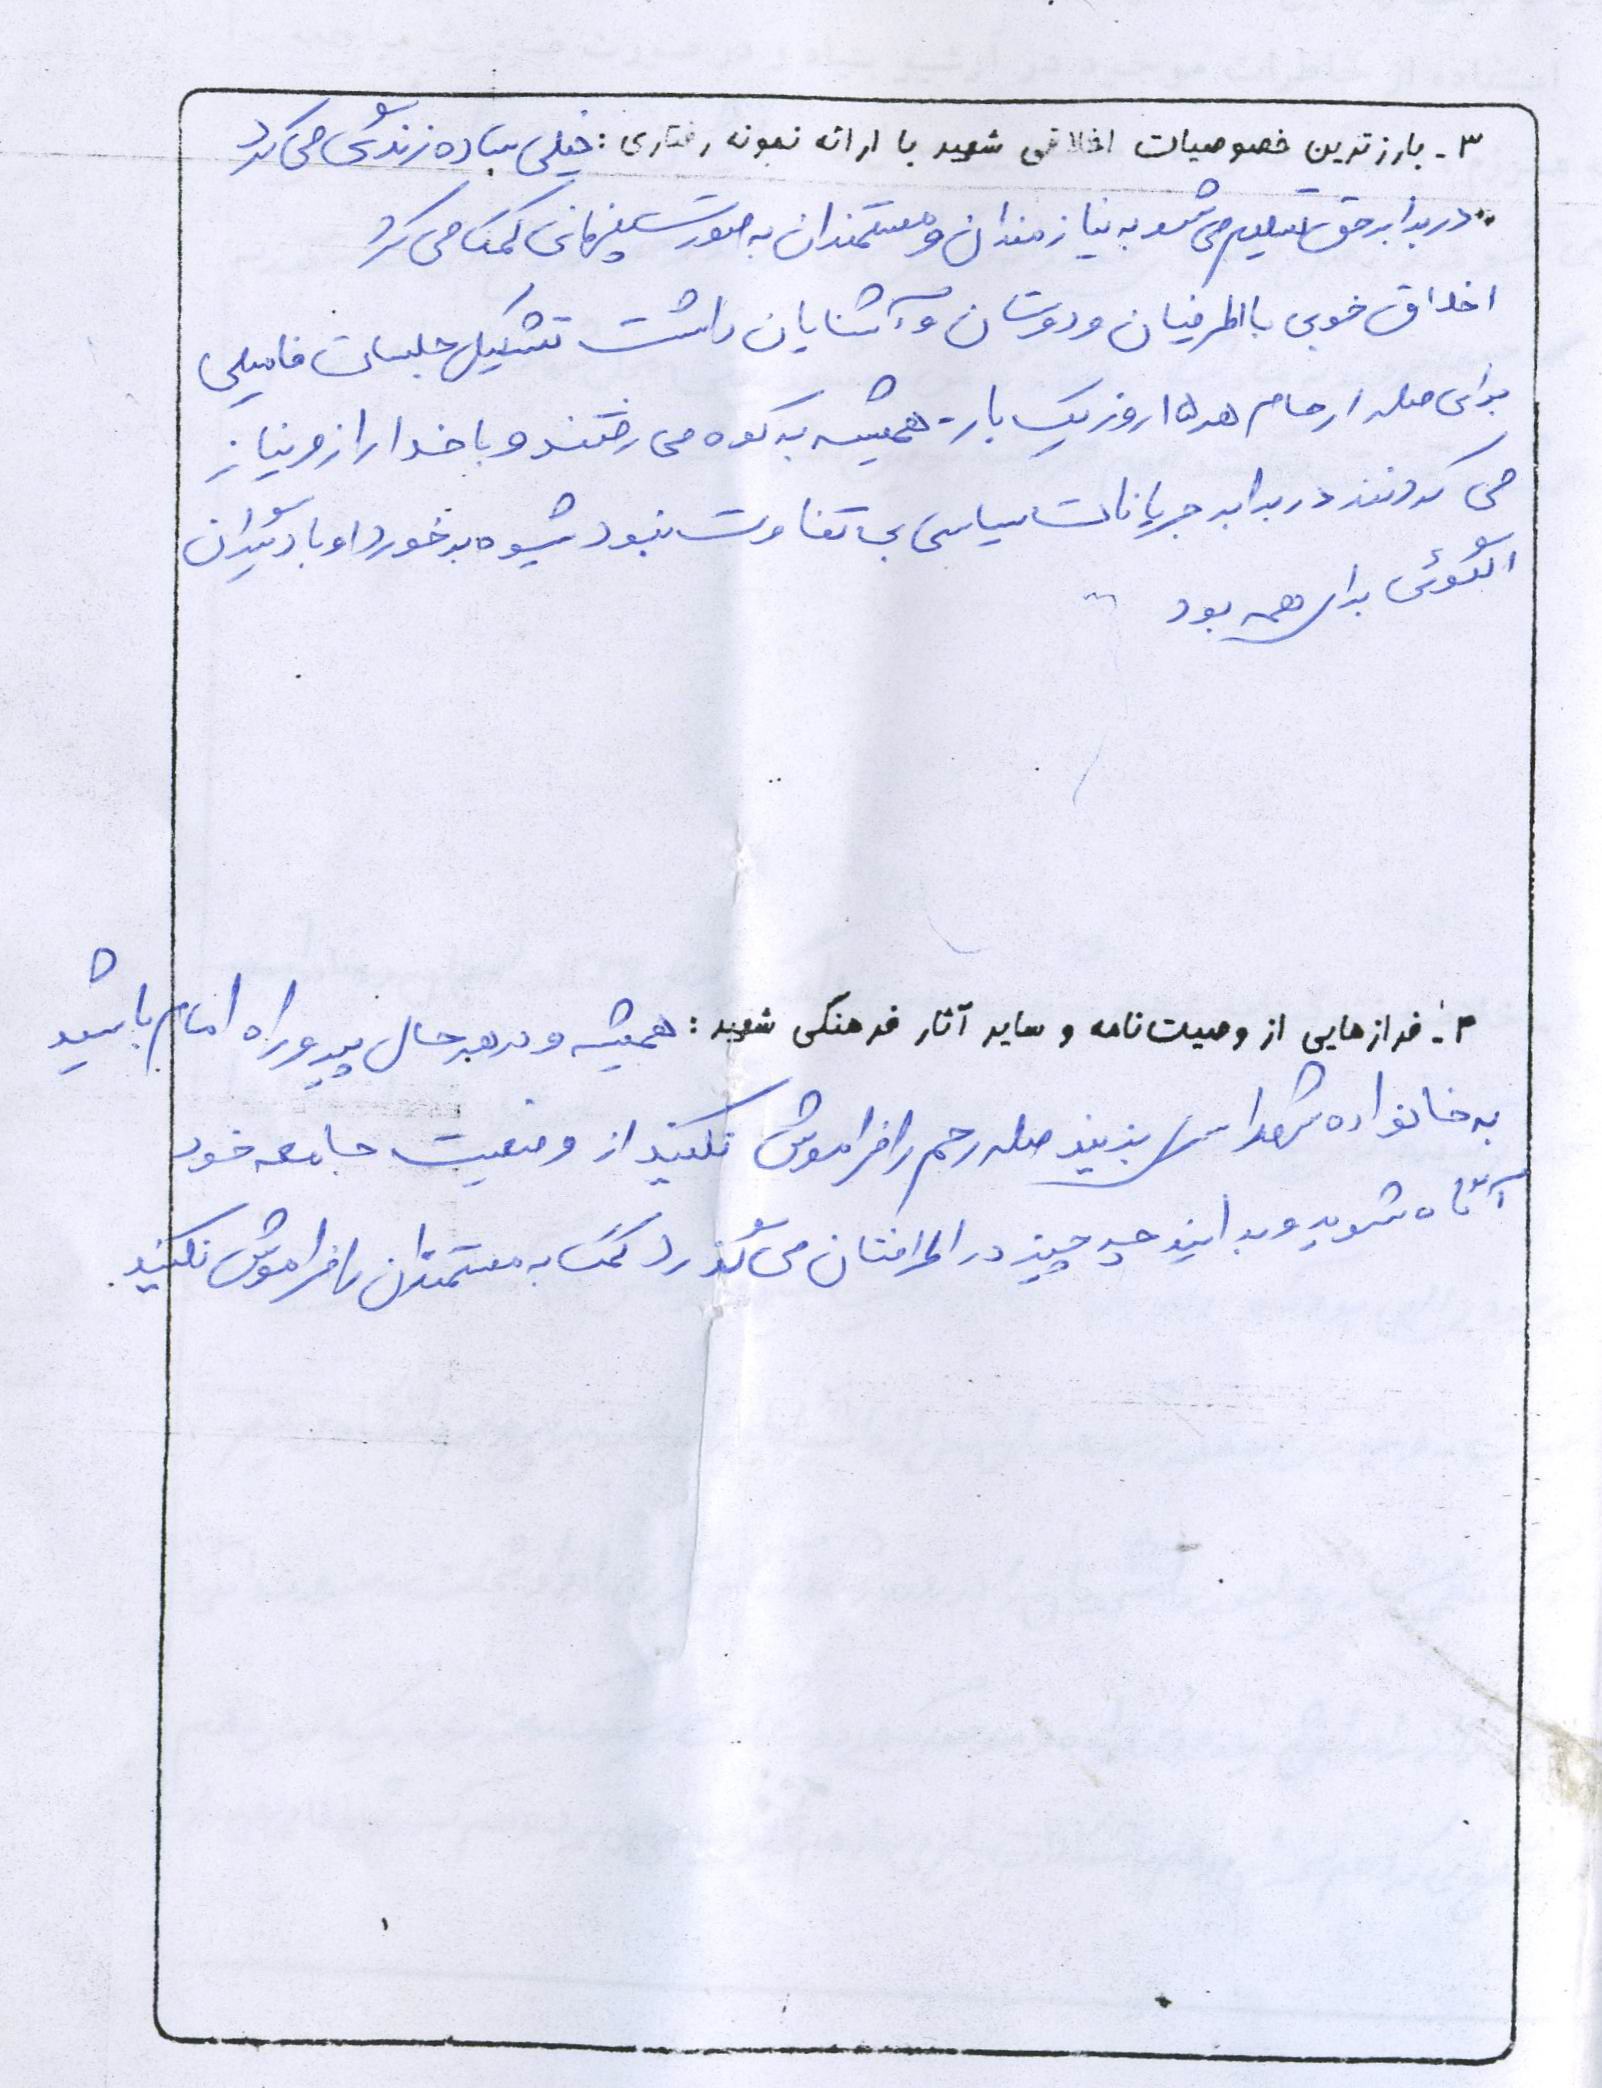 ۳- بارزترین خصوصیات اخلاقی شهید با ارائه نمونه رفتاری: خیلی ساده زندگی می کرد
در برابر حق تسلیم می شد به نیازمندان و مستمندان به صورت پنهانی کمک می کرد
اخلاق خوبی با اطرفیان و دوستان و آشنایان داشت تشکیل جلسات فامیلی
برای صله ارحام هر ۱۵ روز یک بار - همیشه به کوه می رفتند و با خدا راز و نیاز
می کردند در برابر جریانات سیاسی بی تفاوت نبود شیوه برخورد او با دیگران
الگوئی برای همه بود
۴- فرازهایی از وصیت‌نامه و سایر آثار فرهنگی شهید: همیشه و در هر حال پیرو راه امام باشید
به خانواده شهدا سر بزنید صله رحم را فراموش نکنید از وضعیت جامعه خود
آگاه شوید و بدانید چه چیز در اطرافتان می گذرد کمک به مستمندان را فراموش نکنید.